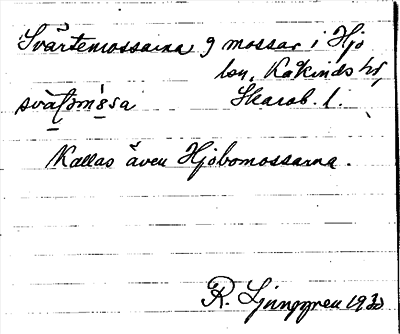 Svärtemossarna, 9 mossar i Hjo
lsn, Kåkinds hd,
Skarab. l.
Kallas även Hjobomossarna.
R. Ljunggren 1930